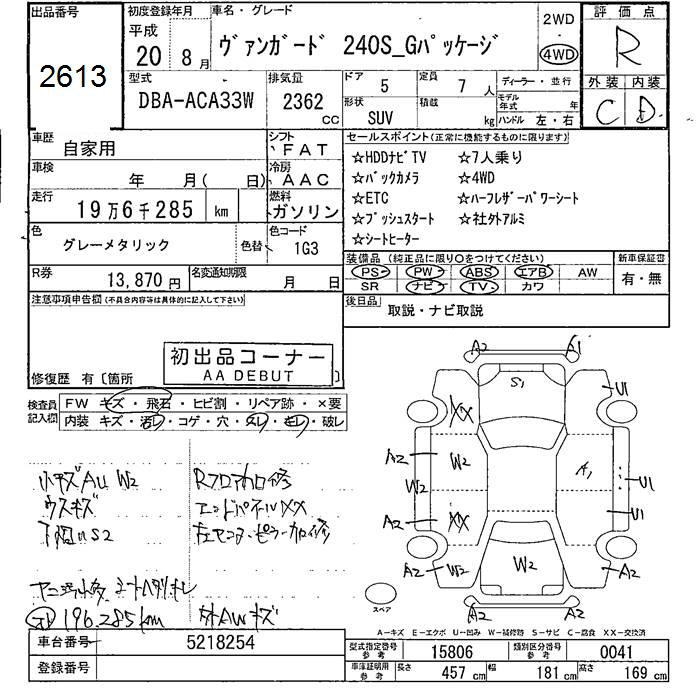 出品番号
2613
初度登録年月
平成
20 8月
車名・グレード
ヴァンガード 240S_Gパッケージ
2WD
4WD
評価点
R
外装 内装
C D
型式
DBA-ACA33W
排気量
2362 CC
ドア 5
定員 7 人
形状 SUV
積載 kg
ディーラー・並行
モデル年式 年
ハンドル 左・右
車歴
自家用
シフト
FAT
車検
年 月( 日)
冷房
AAC
走行
19万6千285 km
燃料
ガソリン
色
グレーメタリック
色替
色コード
1G3
R券
13,870円
名変通知期限
月 日
セールスポイント(正常に機能するものに限ります)
☆HDDナビTV ☆7人乗り
☆バックカメラ ☆4WD
☆ETC ☆ハーフレザーパワーシート
☆プッシュスタート ☆社外アルミ
☆シートヒーター
装備品(純正品に限り○をつけてください)
新車保証書
PS PW ABS エアB AW
SR ナビ TV カワ
有・無
後日品
取説・ナビ取説
注意事項申告欄(不具合内容等は具体的に記入して下さい)
初出品コーナー
AA DEBUT
修復歴 有〔箇所 〕
検査員記入欄
FW キズ・飛石・ヒビ割・リペア跡・×要
内装 キズ・汚レ・コゲ・穴・スレ・モレ・破レ
小キズAU W2
ウスキズ
下廻りS2
RフロアカロC修
エンドパネルXX
196,285km
外AWキズ
A2 A1
S1
XX
U1
A2
W2
W2
A1
U1
A2
XX
U1
A2
W2
W2
A2
A2 A2
スペア
A-キズ E-エクボ U-凹み W-補修跡 S-サビ C-腐食 XX-交換済
車台番号
5218254
登録番号
型式指定番号
参考
15806
類別区分番号
参考
0041
車庫証明用
参考
長さ 457 cm
幅 181 cm
高さ 169 cm